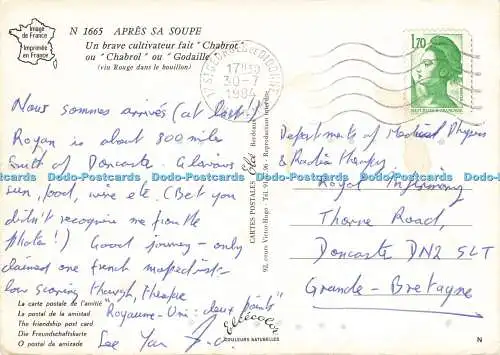 Image
de France
Imprimée
en France
N 1665 APRÈS SA SOUPE
Un brave cultivateur fait "Chabrot"
ou "Chabrol" ou "Godaille"
(vin Rouge dans le bouillon)
17H30
30-7
1984
1,70
REPUBLIQUE FRANCAISE
Nous sommes arrivés (at last!)
Royan is about 800 miles
South of Doncaster. Glorious
sun, food, wine etc. (Bet you
didn't recognise me from the
photo!) Good journey - only
claimed one french mopedist -
low scoring though, therefore
"Royaume-Uni: deux points"
See Yan
Departments of Medical Physics
& Radiotherapy
Royal Infirmary
Thorne Road,
Doncaster DN2 5LT
Grande-Bretagne
CARTES POSTALES
92, cours Victor-Hugo
Reproduction interdite
La carte postale de l'amitié
La postal de la amistad
The friendship post card
Die Freundschaftskarte
O postal da amizade
Elcécolor
COULEURS NATURELLES
N
Dodo-Postcards Dodo-Postcards Dodo-Postcards Dodo-Postcards